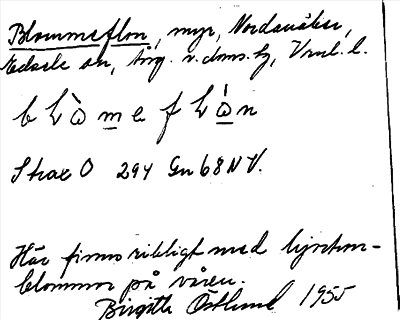 Blommeflon, myr, Nordanåker,
Edsele sn, Ång. v. doms. hg, Vnrl. l.
b L ò m e f L ò n
Strax O 294 Gn 68 NV.
Här finns rikligt med hjortron-
blommor på våren.
Birgitta Östlund 1955